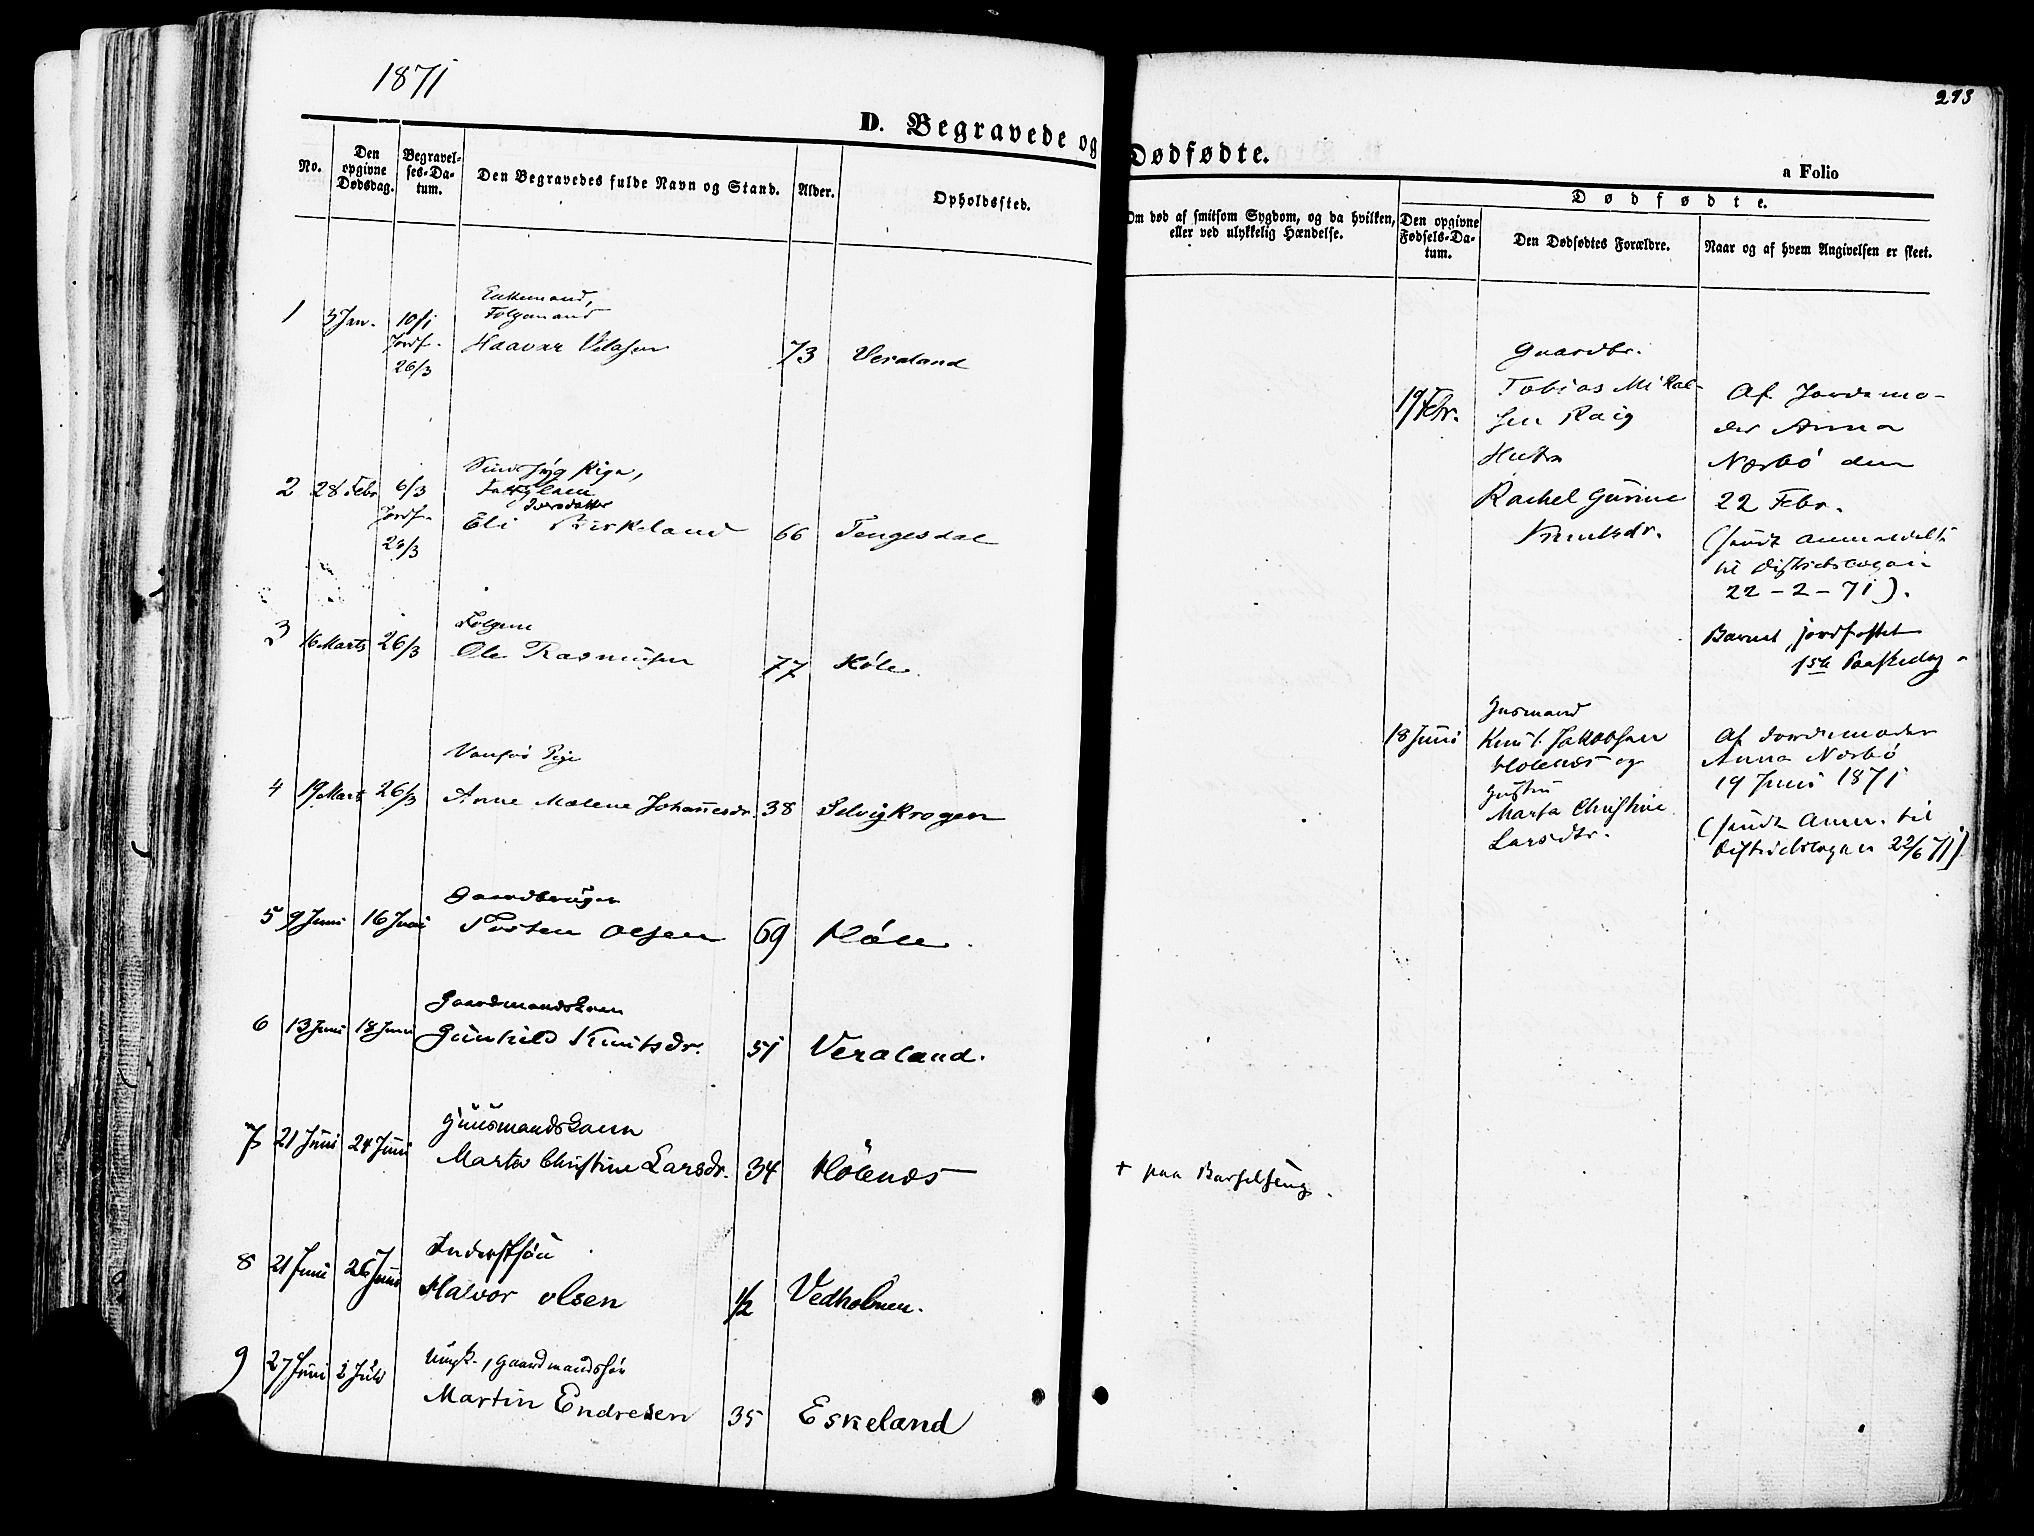 1871
293
D. Begravede og Dødfødte.
a Folio
No.
Den opgivne Dødsdag.
Begravelses-Datum.
Den Begravedes fulde Navn og Stand.
Alder.
Opholdssted.
Om død af smitsom Sygdom, og da hvilken, eller ved ulykkelig Hændelse.
Dødfødte.
Den opgivne Fødsels-Datum.
Den Dødfødtes Forældre.
Naar og af hvem Angivelsen er skeet.
1 3 Jan. 10/1 Jordf. 26/3
Enkemand,
Folgemand
Haavar 73 Veraland
2 28 Febr 6/3 Jordf.
Pige,
Iversdatter
Eli Birkeland 66 Tengesdal
3 16 Marts 26/3
Ole Rasmussen 77 Høle.
4 19 Marts 26/3
Vanför Pige
Anne Malene Johannesdr. 38 Selvigkrogen
5 9 Juni 16 Juni
Gaardbruger
Torsten Olsen 69 Høle.
6 13 Juni 18 Juni
Gaardmandskone
Gunhild Knutsdr. 51 Veraland.
7 21 Juni 24 Juni
Huusmandskone
Marta Christine Larsdr. 34 Hölenæs
+ paa Barselseng.
8 21 Juni 26 Juni
Inderstsön
Halvor Olsen 1/2 Vedholmen.
9 27 Juni 2 Juli
Ungk., Gaardmandssön
Martin Endresen 35 Eskeland
19 Febr.
Gaardbr.
Tobias Mikal-
sen
Hustru
Rachel Gurine
Knutsdr.
Af Jordemo-
der Anna
Nærbö den
22 Febr.
(sendt Anmeldelse
til Distriktslægen
22-2-71).
Barnet jordfæstet
1ste Paaskedag
18 Juni
Husmand
Knut Jakobsen
Holenæs og
Hustru
Marta Christine
Larsdtr.
Af Jordemoder
Anna Nærbö
19 Juni 1871
(sendt Anm. til
Distriktslægen 22/6 71)